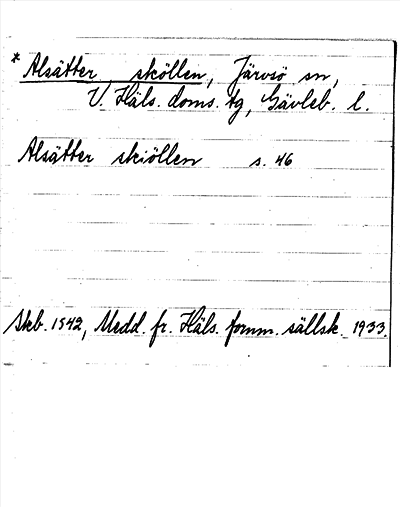 * Alsätter sköllen, Järvsö sn,
V. Häls. doms. tg, Gävleb. l.
Alsätter skiöllen s. 46
Skb. 1542, Medd. fr. Häls. fornm. sällsk. 1933.